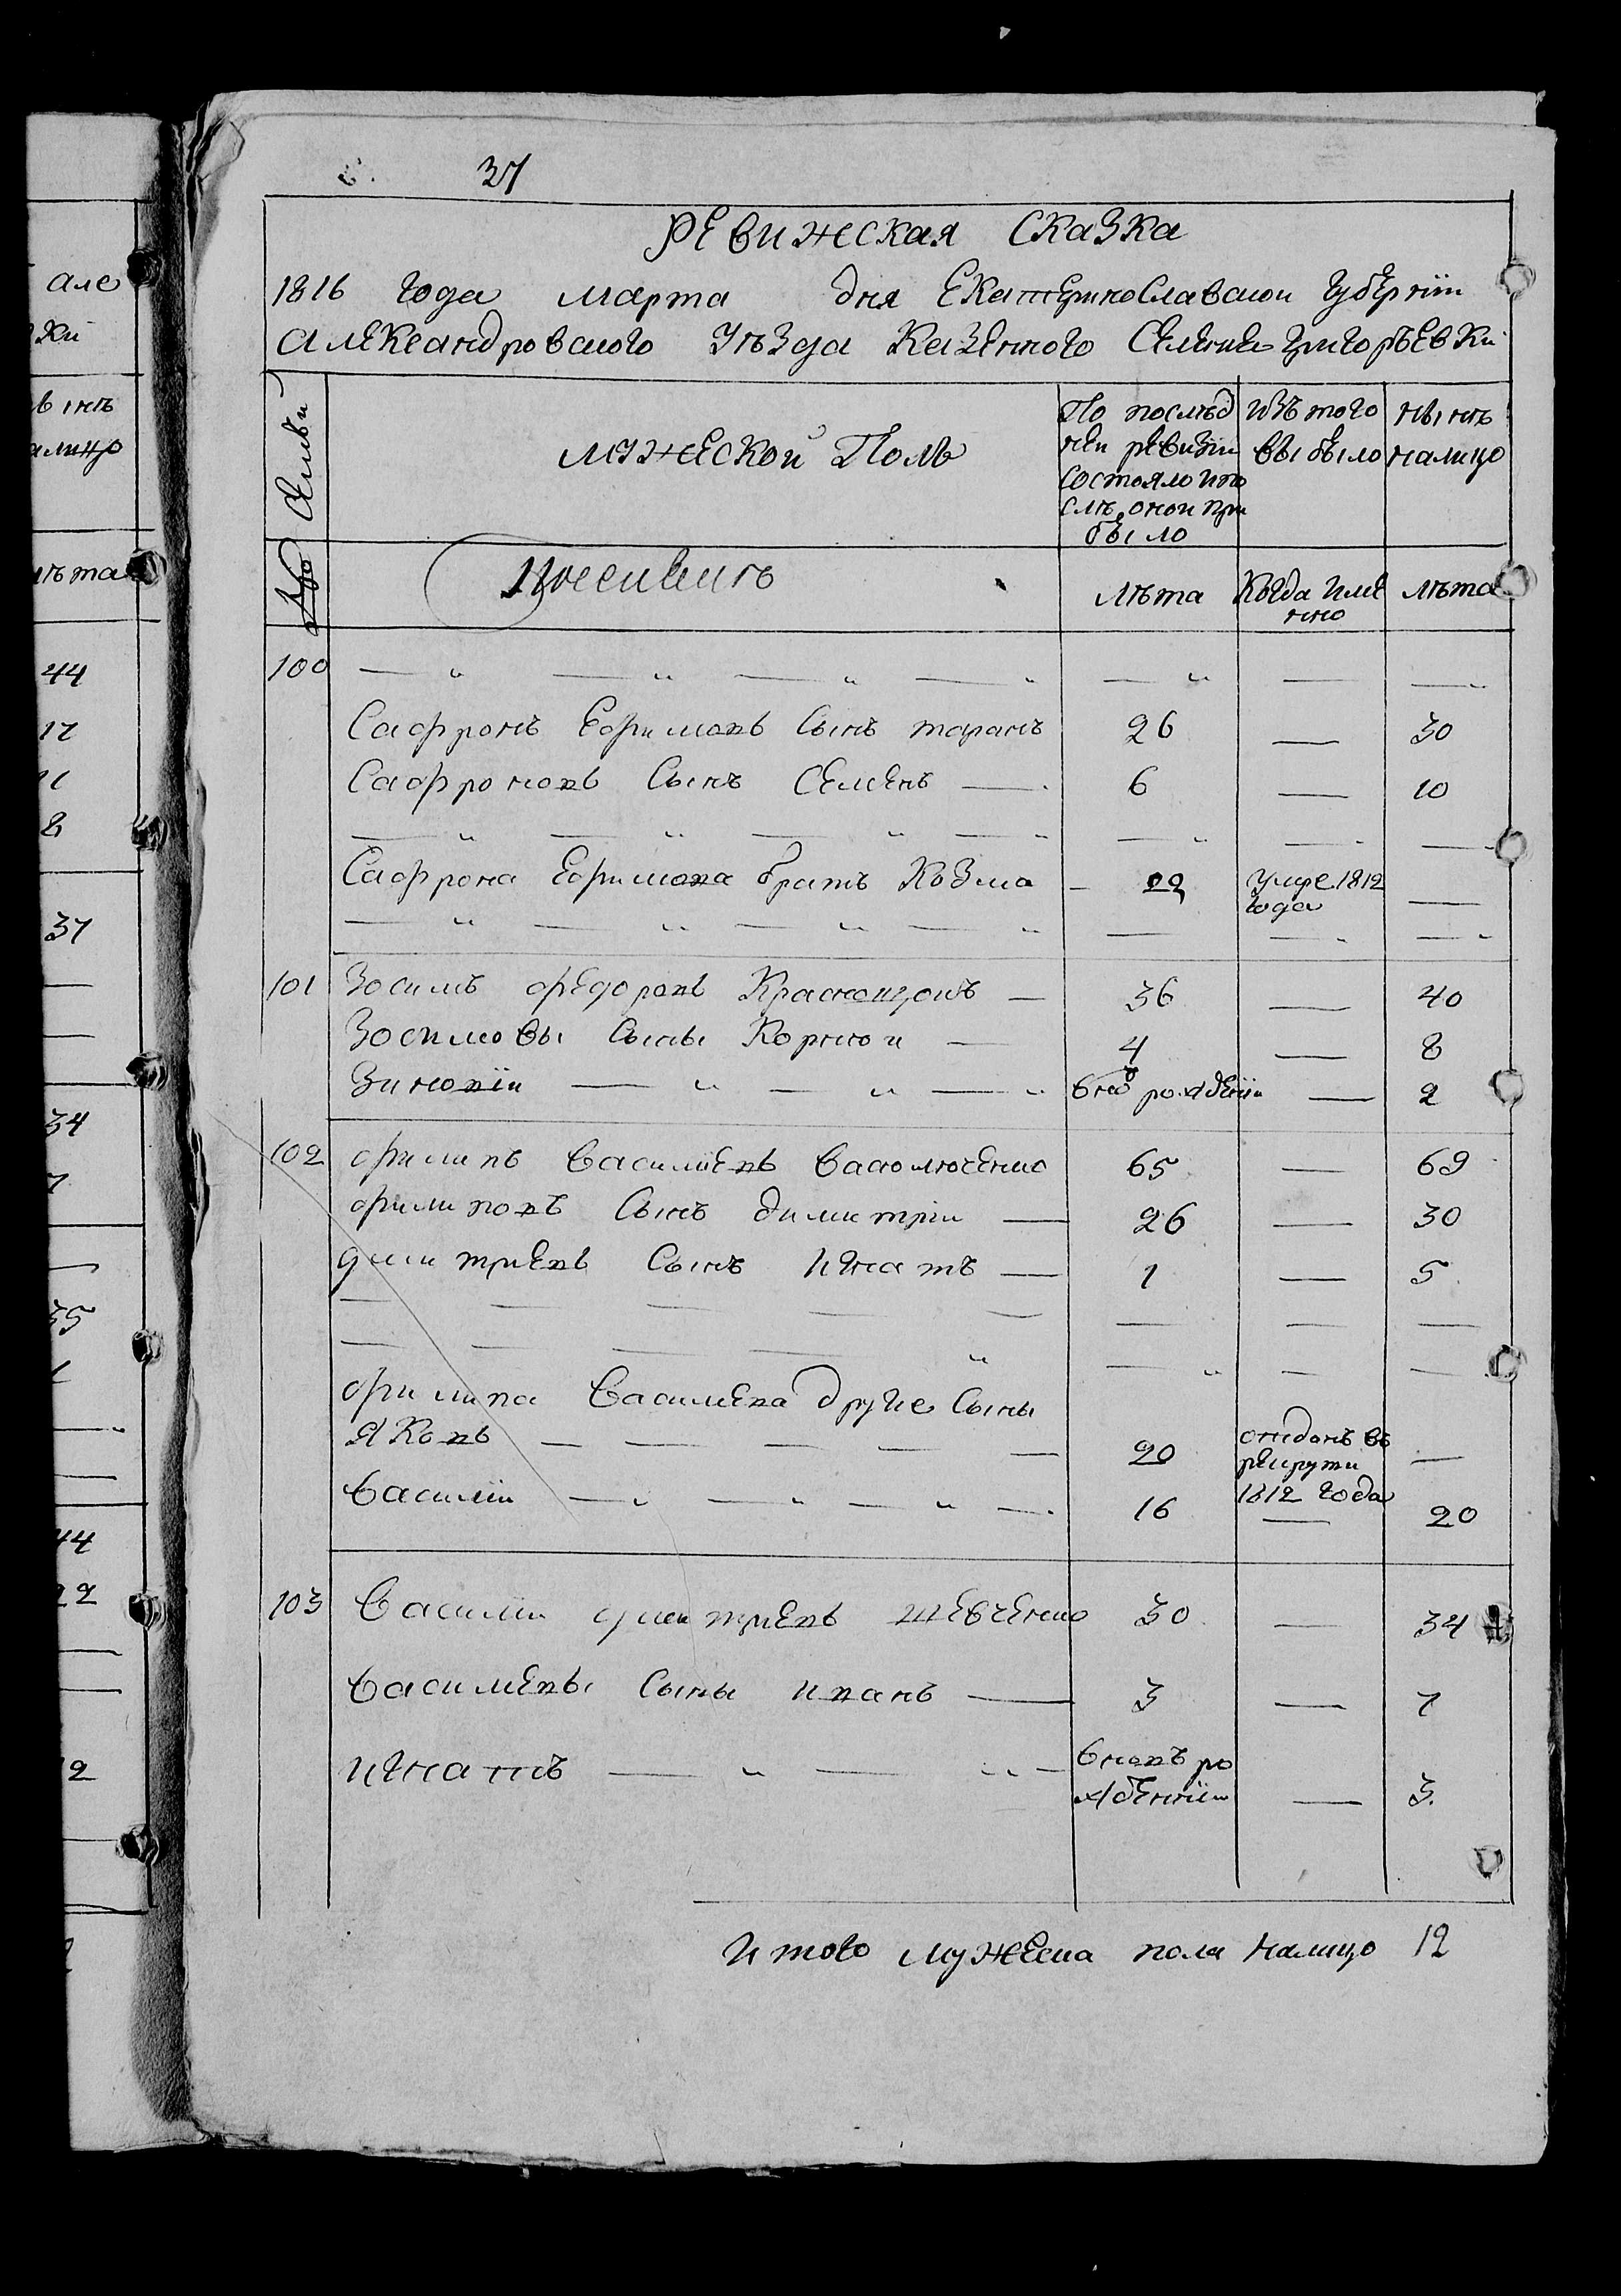 37
Ревижская Сказка
1816 года марта дня Екатеринославской губернии
Александровского уезда Казенного Селения Григорьевки
№ Семьи
мужеской Полъ
По послед
ней ревизии
состояло и по
сле оной при
было
изъ того
выбыло
ныне
налицо
лета
Когда име
нно
лета
100
Сафронъ Ефимовъ Сынъ таранъ 26 — 30
Сафроновъ Сынъ Семенъ — 6 — 10
Сафрона Ефимова братъ Козма — 22 умре 1812
года —
101 Зосимъ федоровъ Краснощокъ — 36 — 40
Зосимовы Сыны Корнюй — 4 — 8
Зиновiй — внов рожденiй — 2
102 филипъ Василiевъ Васюлюченко 65 — 69
филиповъ Сынъ димитрiй — 26 — 30
дмитриевъ Сынъ игнатъ — 1 — 5
филипа Василева другие Сыны
Яковъ — 20 отданъ въ
рекруты
1812 года —
Василiй — 16 — 20
103 Василий дмитриевъ шевченко 30 — 34
Василевы Сыны иванъ — 3 — 7
игнатъ — вновъ ро
жденнiй — 3
Итого мужеска пола налицо 12
але
жи
лицо
лета
44
17
11
8
37
34
7
35
1
44
22
2